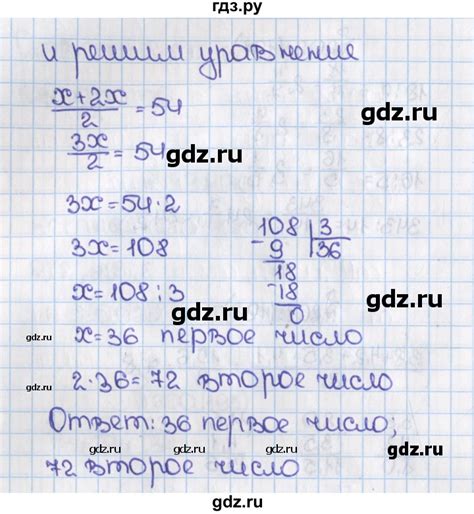 гдз.ру
и решим уравнение
x+2x/2 = 54
3x/2 = 54
gdz.ru
3x=54·2
3x=108
x=108:3
108 | 3
- 9 | 36
18
- 18
0
gdz.ru
gdz.ru
gdz.ru
x=36 первое число
gdz.ru
2·36=72 второе число
Ответ: 36 первое число;
gdz.ru
gdz.ru
72 второе число
gdz.ru